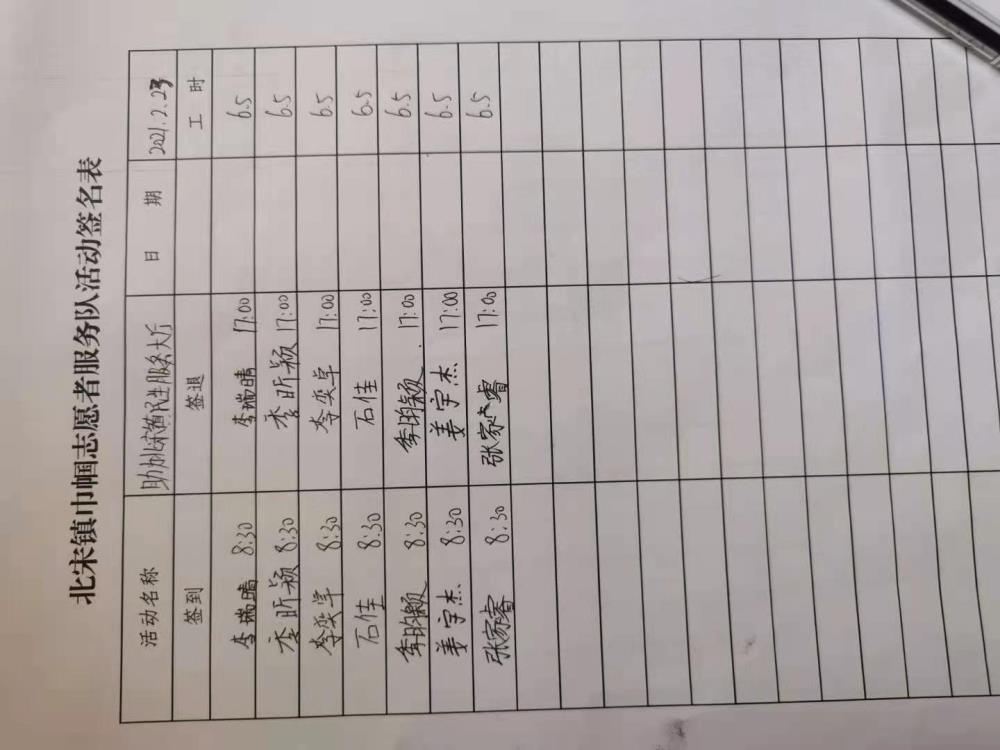 北宋镇巾帼志愿者服务队活动签名表
活动名称 助力北宋镇民生服务大厅 日 期 2021.2.23
签到 签退 工 时
李瑞晴 8:30 李瑞晴 17:00 6.5
李昕颖 8:30 李昕颖 17:00 6.5
李奕卓 8:30 李奕卓 17:00 6.5
石佳 8:30 石佳 17:00 6.5
季昀颖 8:30 季昀颖 17:00 6.5
姜宇杰 8:30 姜宇杰 17:00 6.5
张家睿 8:30 张家睿 17:00 6.5